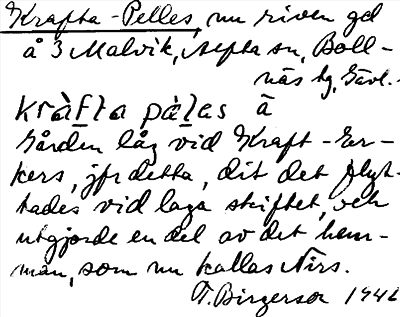 Krafta-Pelles, nu riven gd
å 3 Malvik, Alfta sn, Boll-
näs tg, Gävl.
kràfta pàlas å
Gården låg vid Kraft-Er-
kers, jfr detta, dit det flyt-
tades vid laga skiftet, och
utgjorde en del av det hem-
man, som nu kallas Nirs.
T. Birgersor 1946